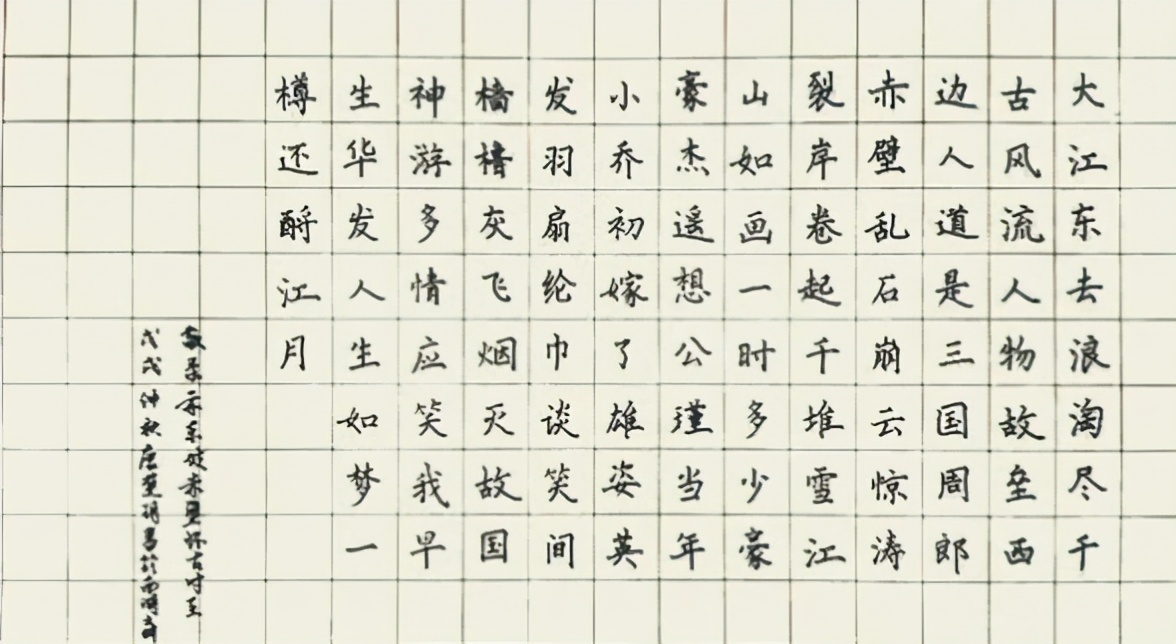 大江东去浪淘尽千
古风流人物故垒西
边人道是三国周郎
赤壁乱石崩云惊涛
裂岸卷起千堆雪江
山如画一时多少豪
豪杰遥想公瑾当年
小乔初嫁了雄姿英
发羽扇纶巾谈笑间
樯橹灰飞烟灭故国
神游多情应笑我早
生华发人生如梦一
樽还酹江月
赤壁怀古时至
戊戌仲秋唐书於雨